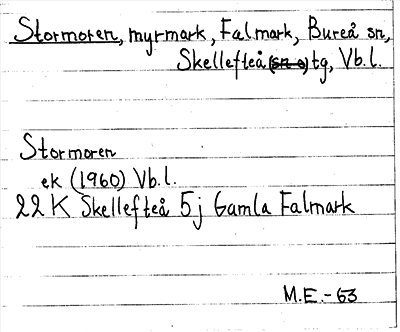 Stormoren, myrmark, Falmark, Bureå sn,
Skellefteå (sn o) tg, Vb.l.
Stormoren
ek (1960) Vb.l.
22 K Skellefteå 5j Gamla Falmark
M.E.-63